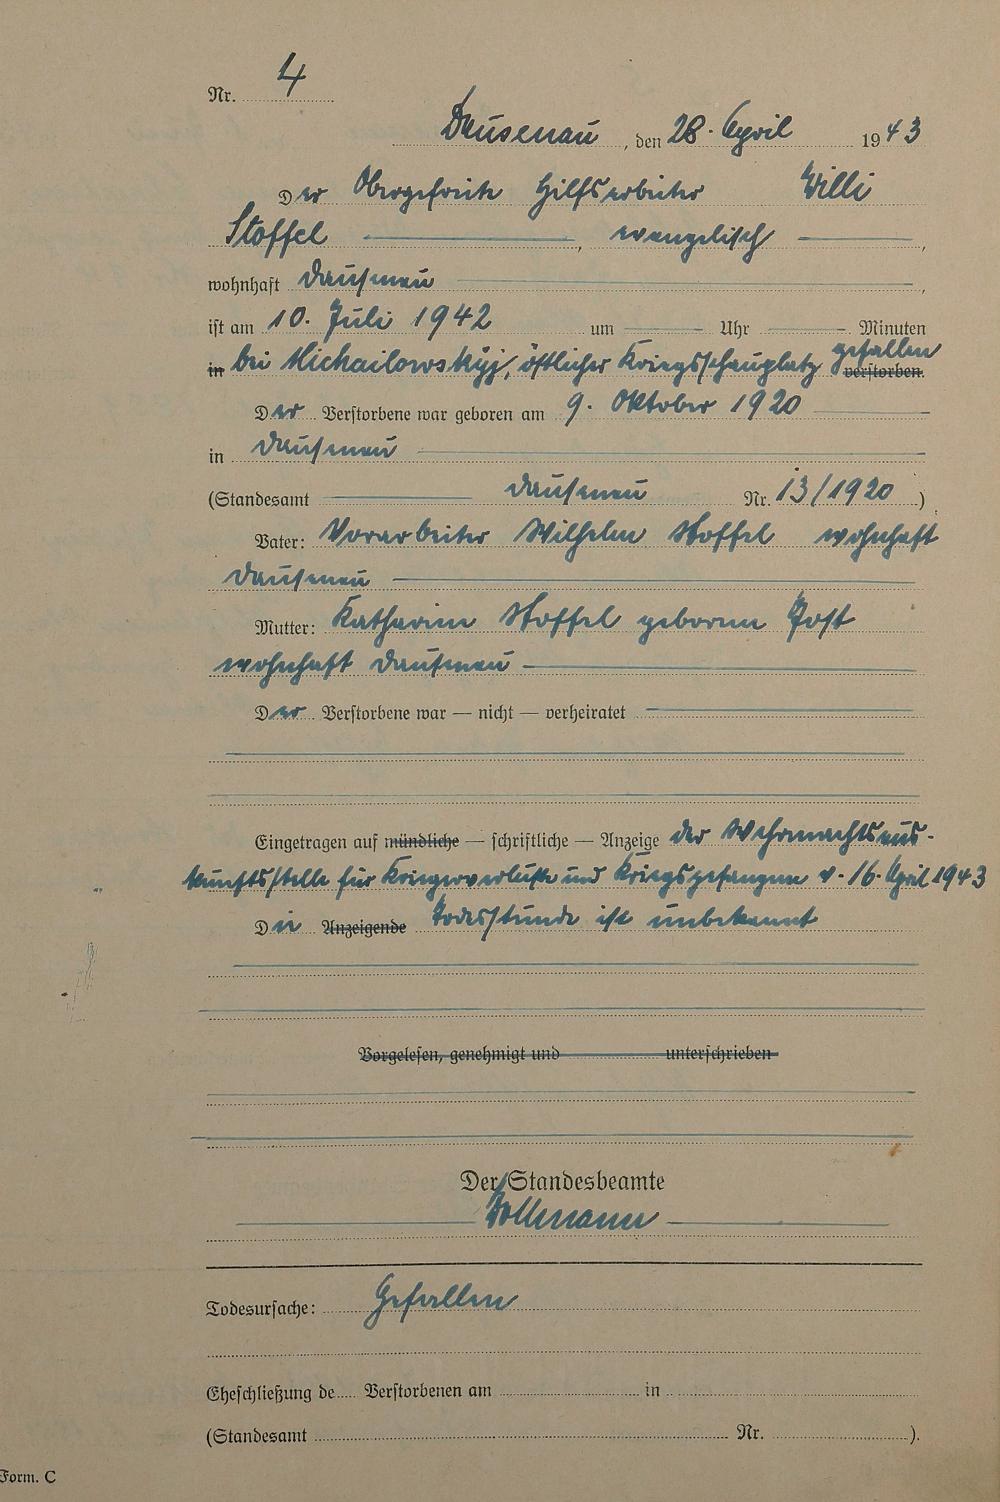 Nr. 4
Dausenau, den 28. April 1943
Der Obergefreite Hilfsarbeiter Willi
Stoffel, evangelisch,
wohnhaft Dausenau,
ist am 10. Juli 1942 um Uhr Minuten
in bei Michailowskyj, östlicher Kriegsschauplatz gefallen verstorben.
Der Verstorbene war geboren am 9. Oktober 1920
in Dausenau
(Standesamt Dausenau Nr. 13/1920)
Vater: Vorarbeiter Wilhelm Stoffel wohnhaft
Dausenau
Mutter: Katharina Stoffel geborene Post
wohnhaft Dausenau
Der Verstorbene war — nicht — verheiratet
Eingetragen auf mündliche — schriftliche — Anzeige der Wehrmachtsaus-
kunftsstelle für Kriegerverluste und Kriegsgefangene v. 16. April 1943
Die Anzeigende Todesstunde ist unbekannt
Vorgelesen, genehmigt und unterschrieben
Der Standesbeamte
Todesursache: Gefallen
Eheschließung de Verstorbenen am in
(Standesamt Nr. ).
Form. C